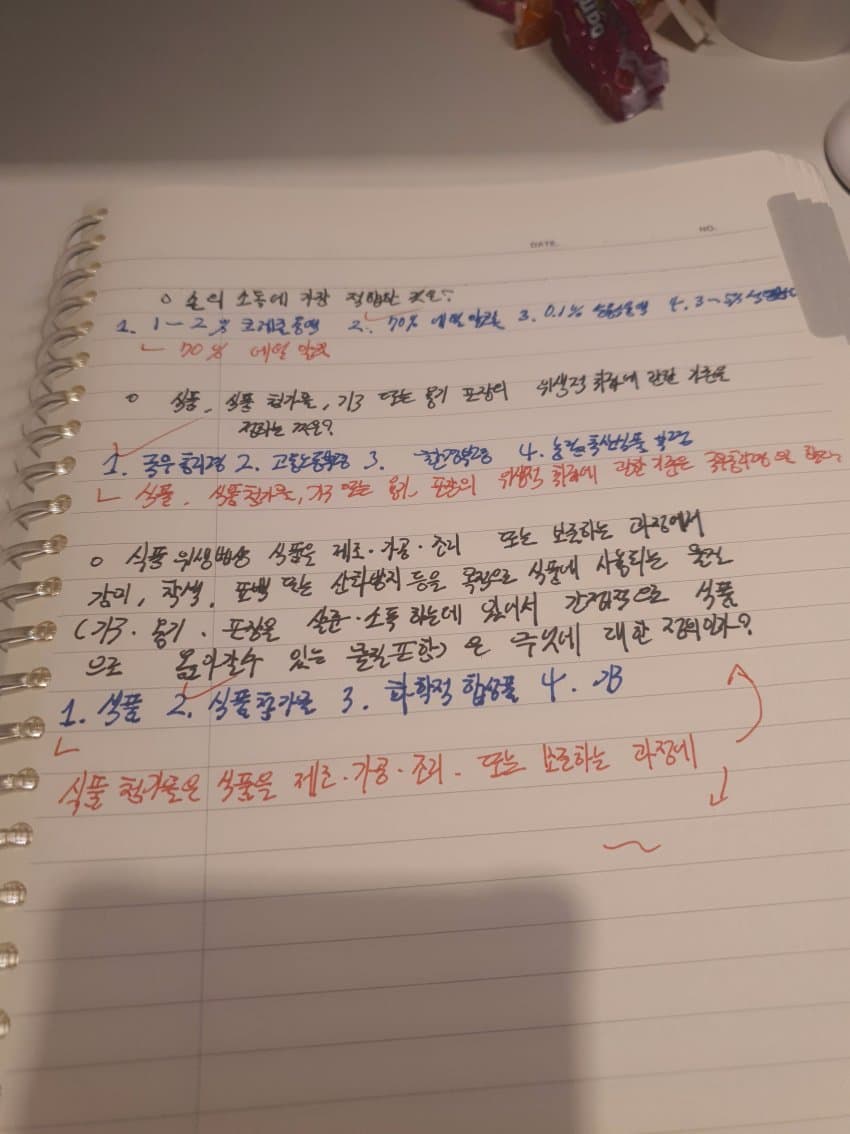 DATE.
NO.
○ 손의 소독에 가장 적합한 것은?
1. 1-2% 크레졸용액 2. 70% 에틸알코올 3. 0.1% 4. 3~5%
70% 에틸
○ 식품, 식품 첨가물, 기구 또는 용기 포장의 위생적 취급에 관한 기준을
정하는 것은?
1. 국무총리령 2. 고용노동부령 3. 환경부령 4. 농림축산식품부령
식품, 식품첨가물, 기구 또는 용기, 포장의 위생적 취급에 관한 기준은 으로
○ 식품위생법상 식품을 제조·가공·조리 또는 보존하는 과정에서
감미, 착색, 표백 또는 산화방지 등을 목적으로 식품에 사용되는 물질
(기구·용기·포장을 살균·소독하는데 있어서 간접적으로 식품
으로 옮아갈수 있는 물질포함)은 무엇에 대한 정의인가?
1. 식품 2. 식품첨가물 3. 화학적 합성품 4. 기구
식품 첨가물은 식품을 제조·가공·조리. 또는 보존하는 과정에